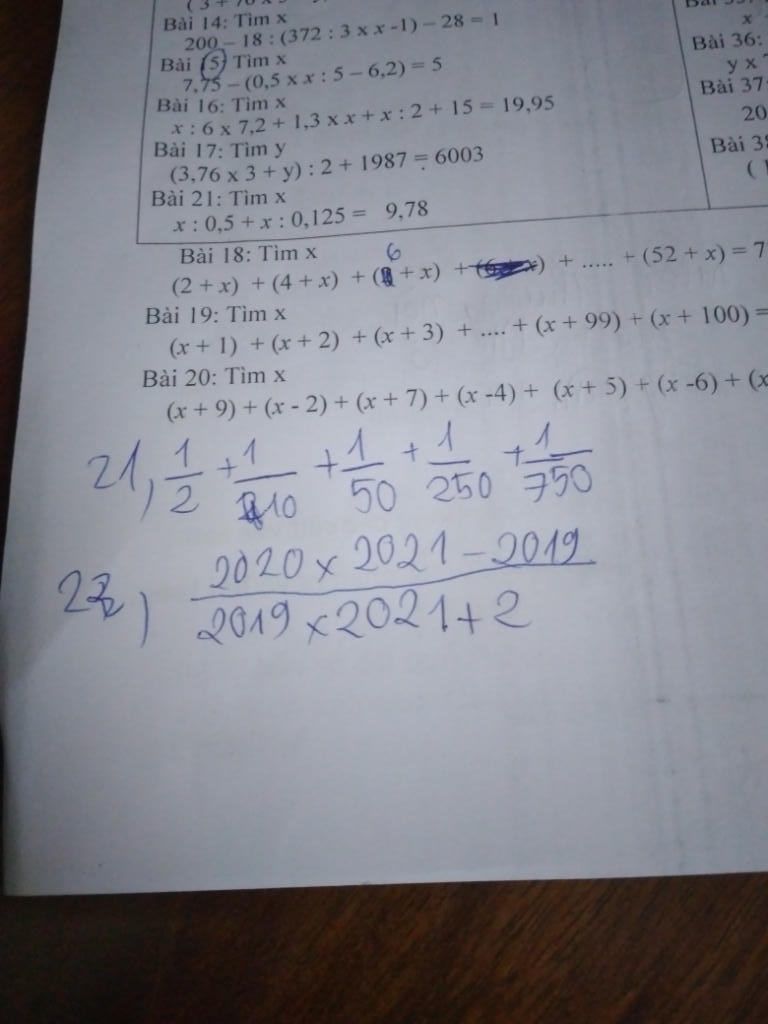 Bài 14: Tìm x
200 – 18 : (372 : 3 x x -1) – 28 = 1
Bài (5) Tìm x
7,75 – (0,5 x x : 5 – 6,2) = 5
Bài 16: Tìm x
x : 6 x 7,2 + 1,3 x x + x : 2 + 15 = 19,95
Bài 17: Tìm y
(3,76 x 3 + y) : 2 + 1987 = 6003
Bài 21: Tìm x
x : 0,5 + x : 0,125 = 9,78
x
Bài 36:
y x
Bài 37
20
Bài 38
(
Bài 18: Tìm x
(2 + x) + (4 + x) + (6 + x) + ..... + (52 + x) = 7
Bài 19: Tìm x
(x + 1) + (x + 2) + (x + 3) + .... + (x + 99) + (x + 100) =
Bài 20: Tìm x
(x + 9) + (x - 2) + (x + 7) + (x -4) + (x + 5) + (x -6) + (x
21, 1/2 + 1/10 + 1/50 + 1/250 + 1/750
22) 2020 x 2021 – 2019
2019 x 2021 + 2